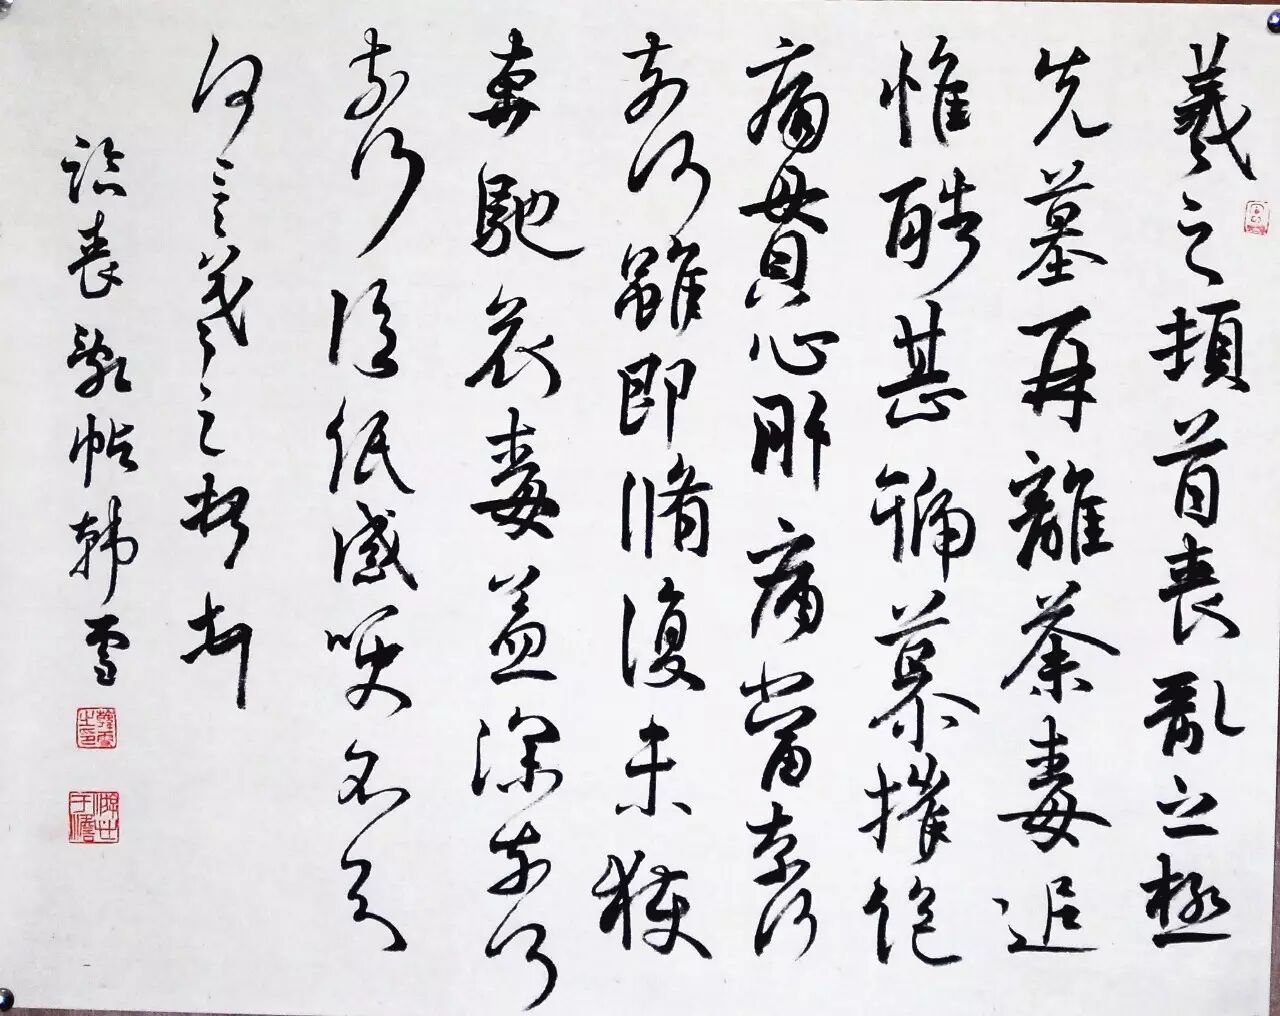 羲之頓首喪亂之極
先墓再離荼毒追
惟酷甚號慕摧絕
痛貫心肝痛當奈何
奈何雖即脩復未獲
奔馳哀毒益深奈何
奈何臨紙感哽不知
何言羲之頓首
臨喪亂帖韓雪
韓雪之印